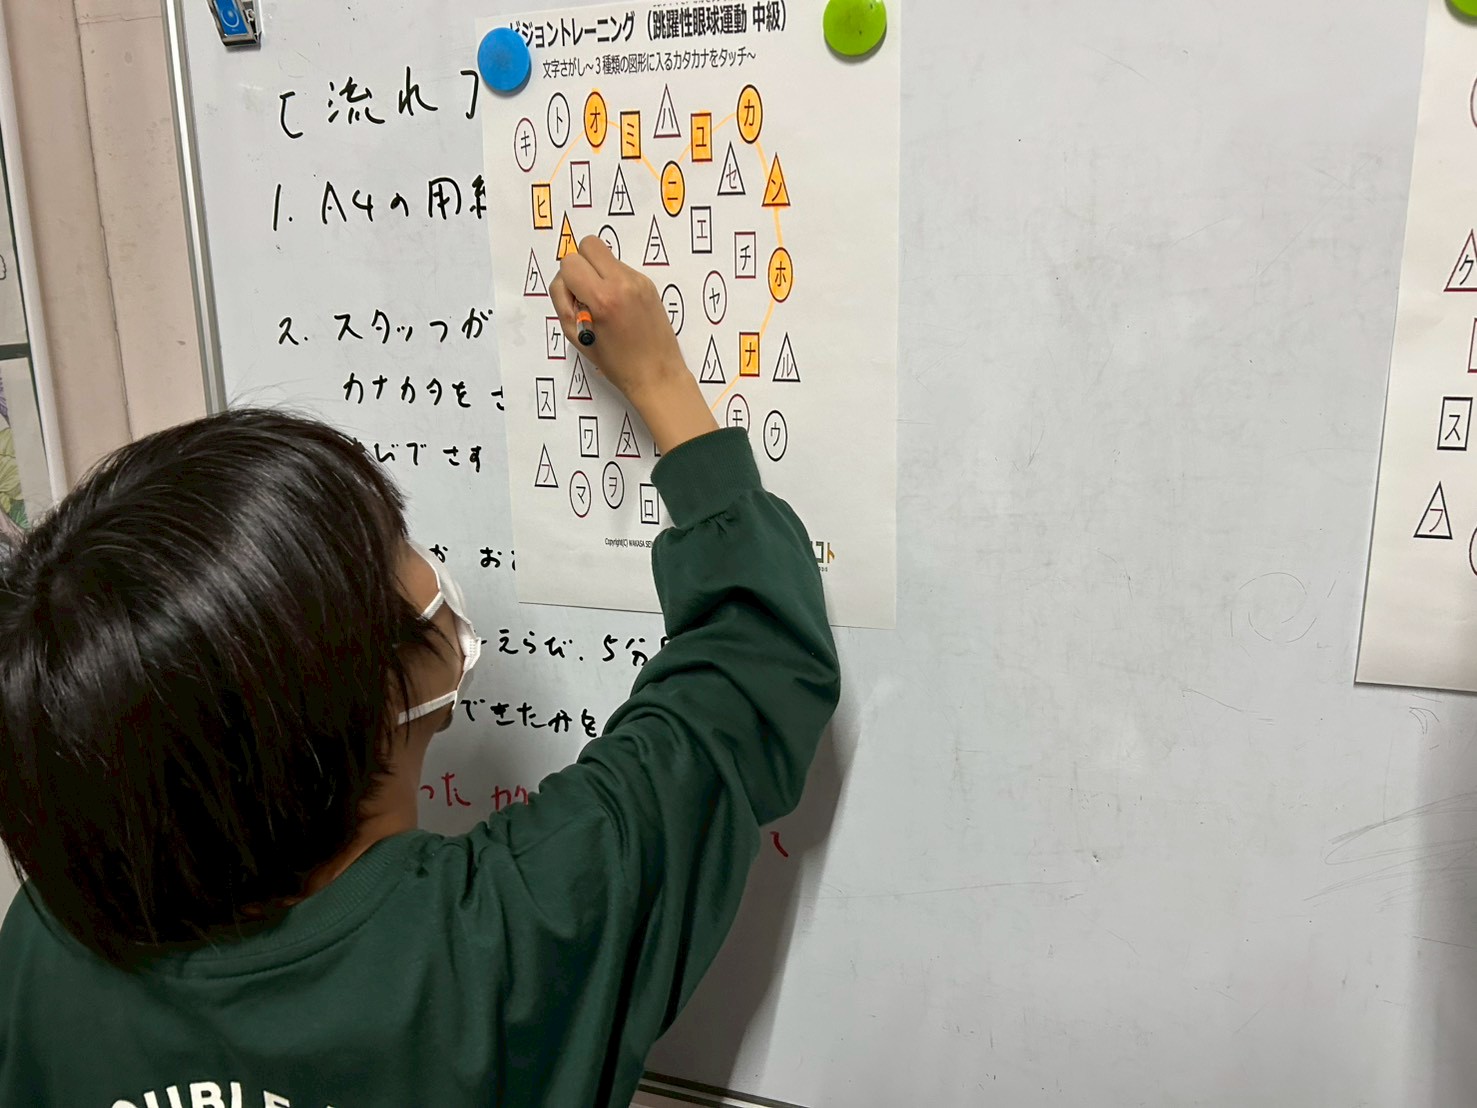 ジョントレーニング（跳躍性眼球運動 中級）
文字さがし～３種類の図形に入るカタカナをタッチ～
キ ト オ ミ ハ ユ カ
ヒ メ サ ニ セ ン
ア ラ エ チ ホ
ク テ ヤ
ケ ツ ソ ナ ル
ス ワ タ モ ウ
フ マ ヲ ロ
Copyright(C) WAKASA SEI
コト
[流れ]
1. A4の用紙
2. スタッフが
カナカタを さ
びでさす
が お
えらび、5分
できた分を
った カタ
ク
ス
フ
OUBLE